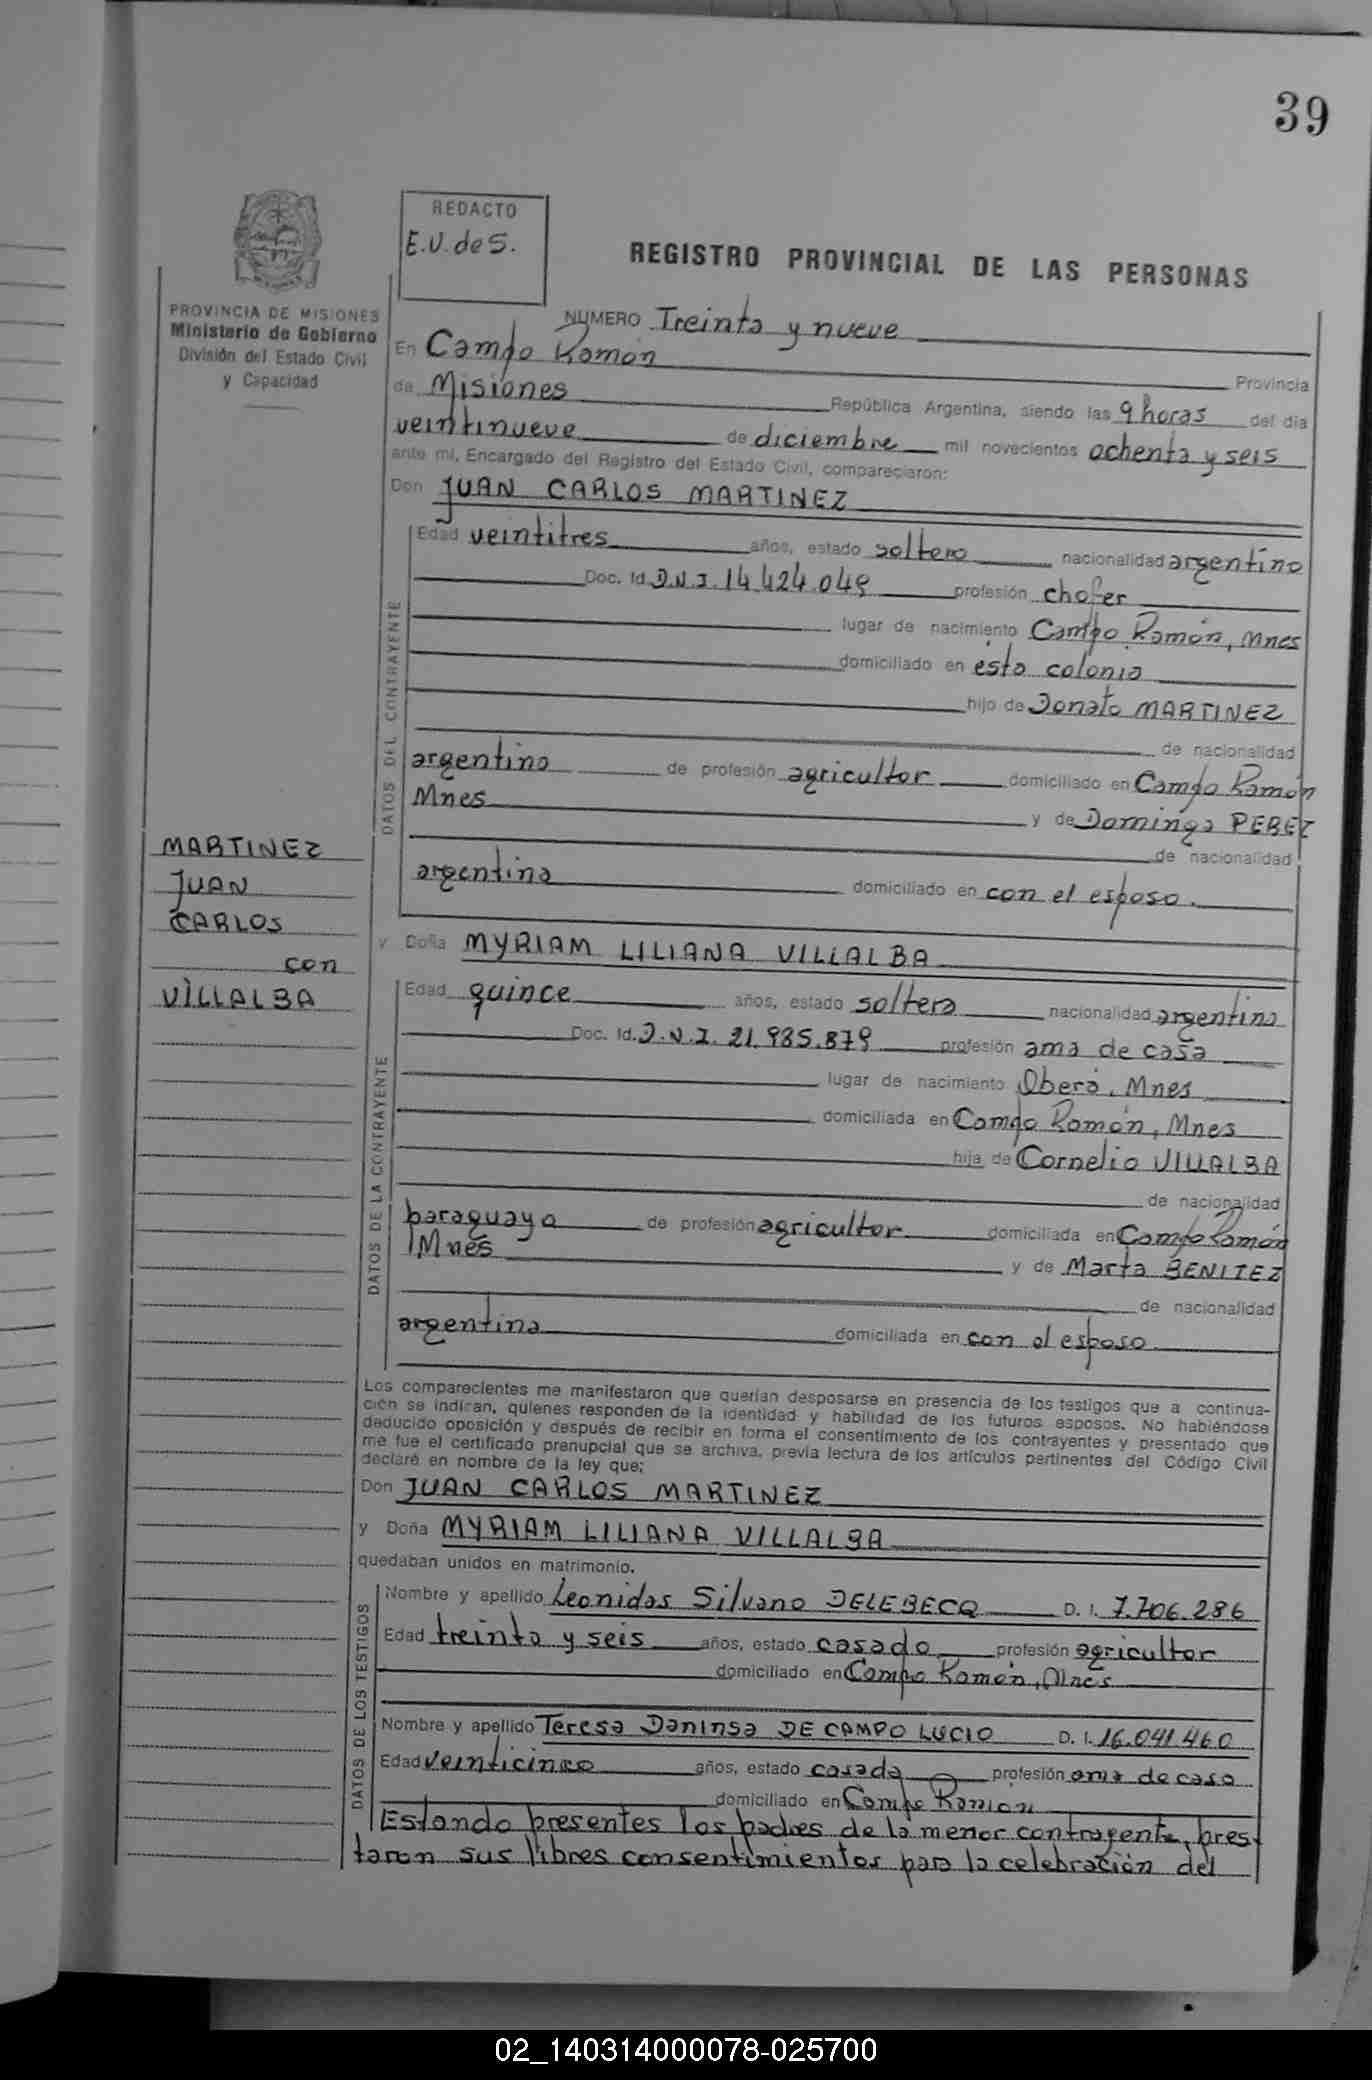 39
REDACTO
E.V. de S.
REGISTRO PROVINCIAL DE LAS PERSONAS
PROVINCIA DE MISIONES
Ministerio de Gobierno
División del Estado Civil
y Capacidad
NUMERO Treinta y nueve
En Campo Ramón Provincia
de Misiones República Argentina, siendo las 9 horas del día
veintinueve de diciembre mil novecientos ochenta y seis
ante mi, Encargado del Registro del Estado Civil, comparecieron:
Don JUAN CARLOS MARTINEZ
DATOS DEL CONTRAYENTE
Edad veintitres años, estado soltero nacionalidad argentino
Doc. Id. D.N.I. 14.424.049 profesión chofer
lugar de nacimiento Campo Ramón, Mnes
domiciliado en ésta colonia
hijo de Donato MARTINEZ
de nacionalidad
argentino de profesión agricultor domiciliado en Campo Ramón
Mnes y de Dominga PEREZ
de nacionalidad
argentina domiciliado en con el esposo.
MARTINEZ
JUAN
CARLOS
con
VILLALBA
y Doña MYRIAM LILIANA VILLALBA
DATOS DE LA CONTRAYENTE
Edad quince años, estado soltera nacionalidad argentina
Doc. Id. D.N.I. 21.935.879 profesión ama de casa
lugar de nacimiento Oberá, Mnes
domiciliada en Campo Ramón, Mnes
hija de Cornelio VILLALBA
de nacionalidad
paraguaya de profesión agricultor domiciliada en Campo Ramón
Mnes y de Marta BENITEZ
de nacionalidad
argentina domiciliada en con el esposo
Los comparecientes me manifestaron que querían desposarse en presencia de los testigos que a continua-
ción se indican, quienes responden de la identidad y habilidad de los futuros esposos. No habiéndose
deducido oposición y después de recibir en forma el consentimiento de los contrayentes y presentado que
me fue el certificado prenupcial que se archiva, previa lectura de los artículos pertinentes del Código Civil
declaré en nombre de la ley que:
Don JUAN CARLOS MARTINEZ
y Doña MYRIAM LILIANA VILLALBA
quedaban unidos en matrimonio.
DATOS DE LOS TESTIGOS
Nombre y apellido Leonidas Silvano DELEBECQ D. I. 7.706.286
Edad treinta y seis años, estado casado profesión agricultor
domiciliado en Campo Ramón, Mnes
Nombre y apellido Teresa Daninsa DE CAMPO LUCIO D. I. 16.041.460
Edad veinticinco años, estado casada profesión ama de casa
domiciliado en Campo Ramón
Estando presentes los padres de la menor contrayente, pres
taron sus libres consentimientos para la celebración del
02_140314000078-025700